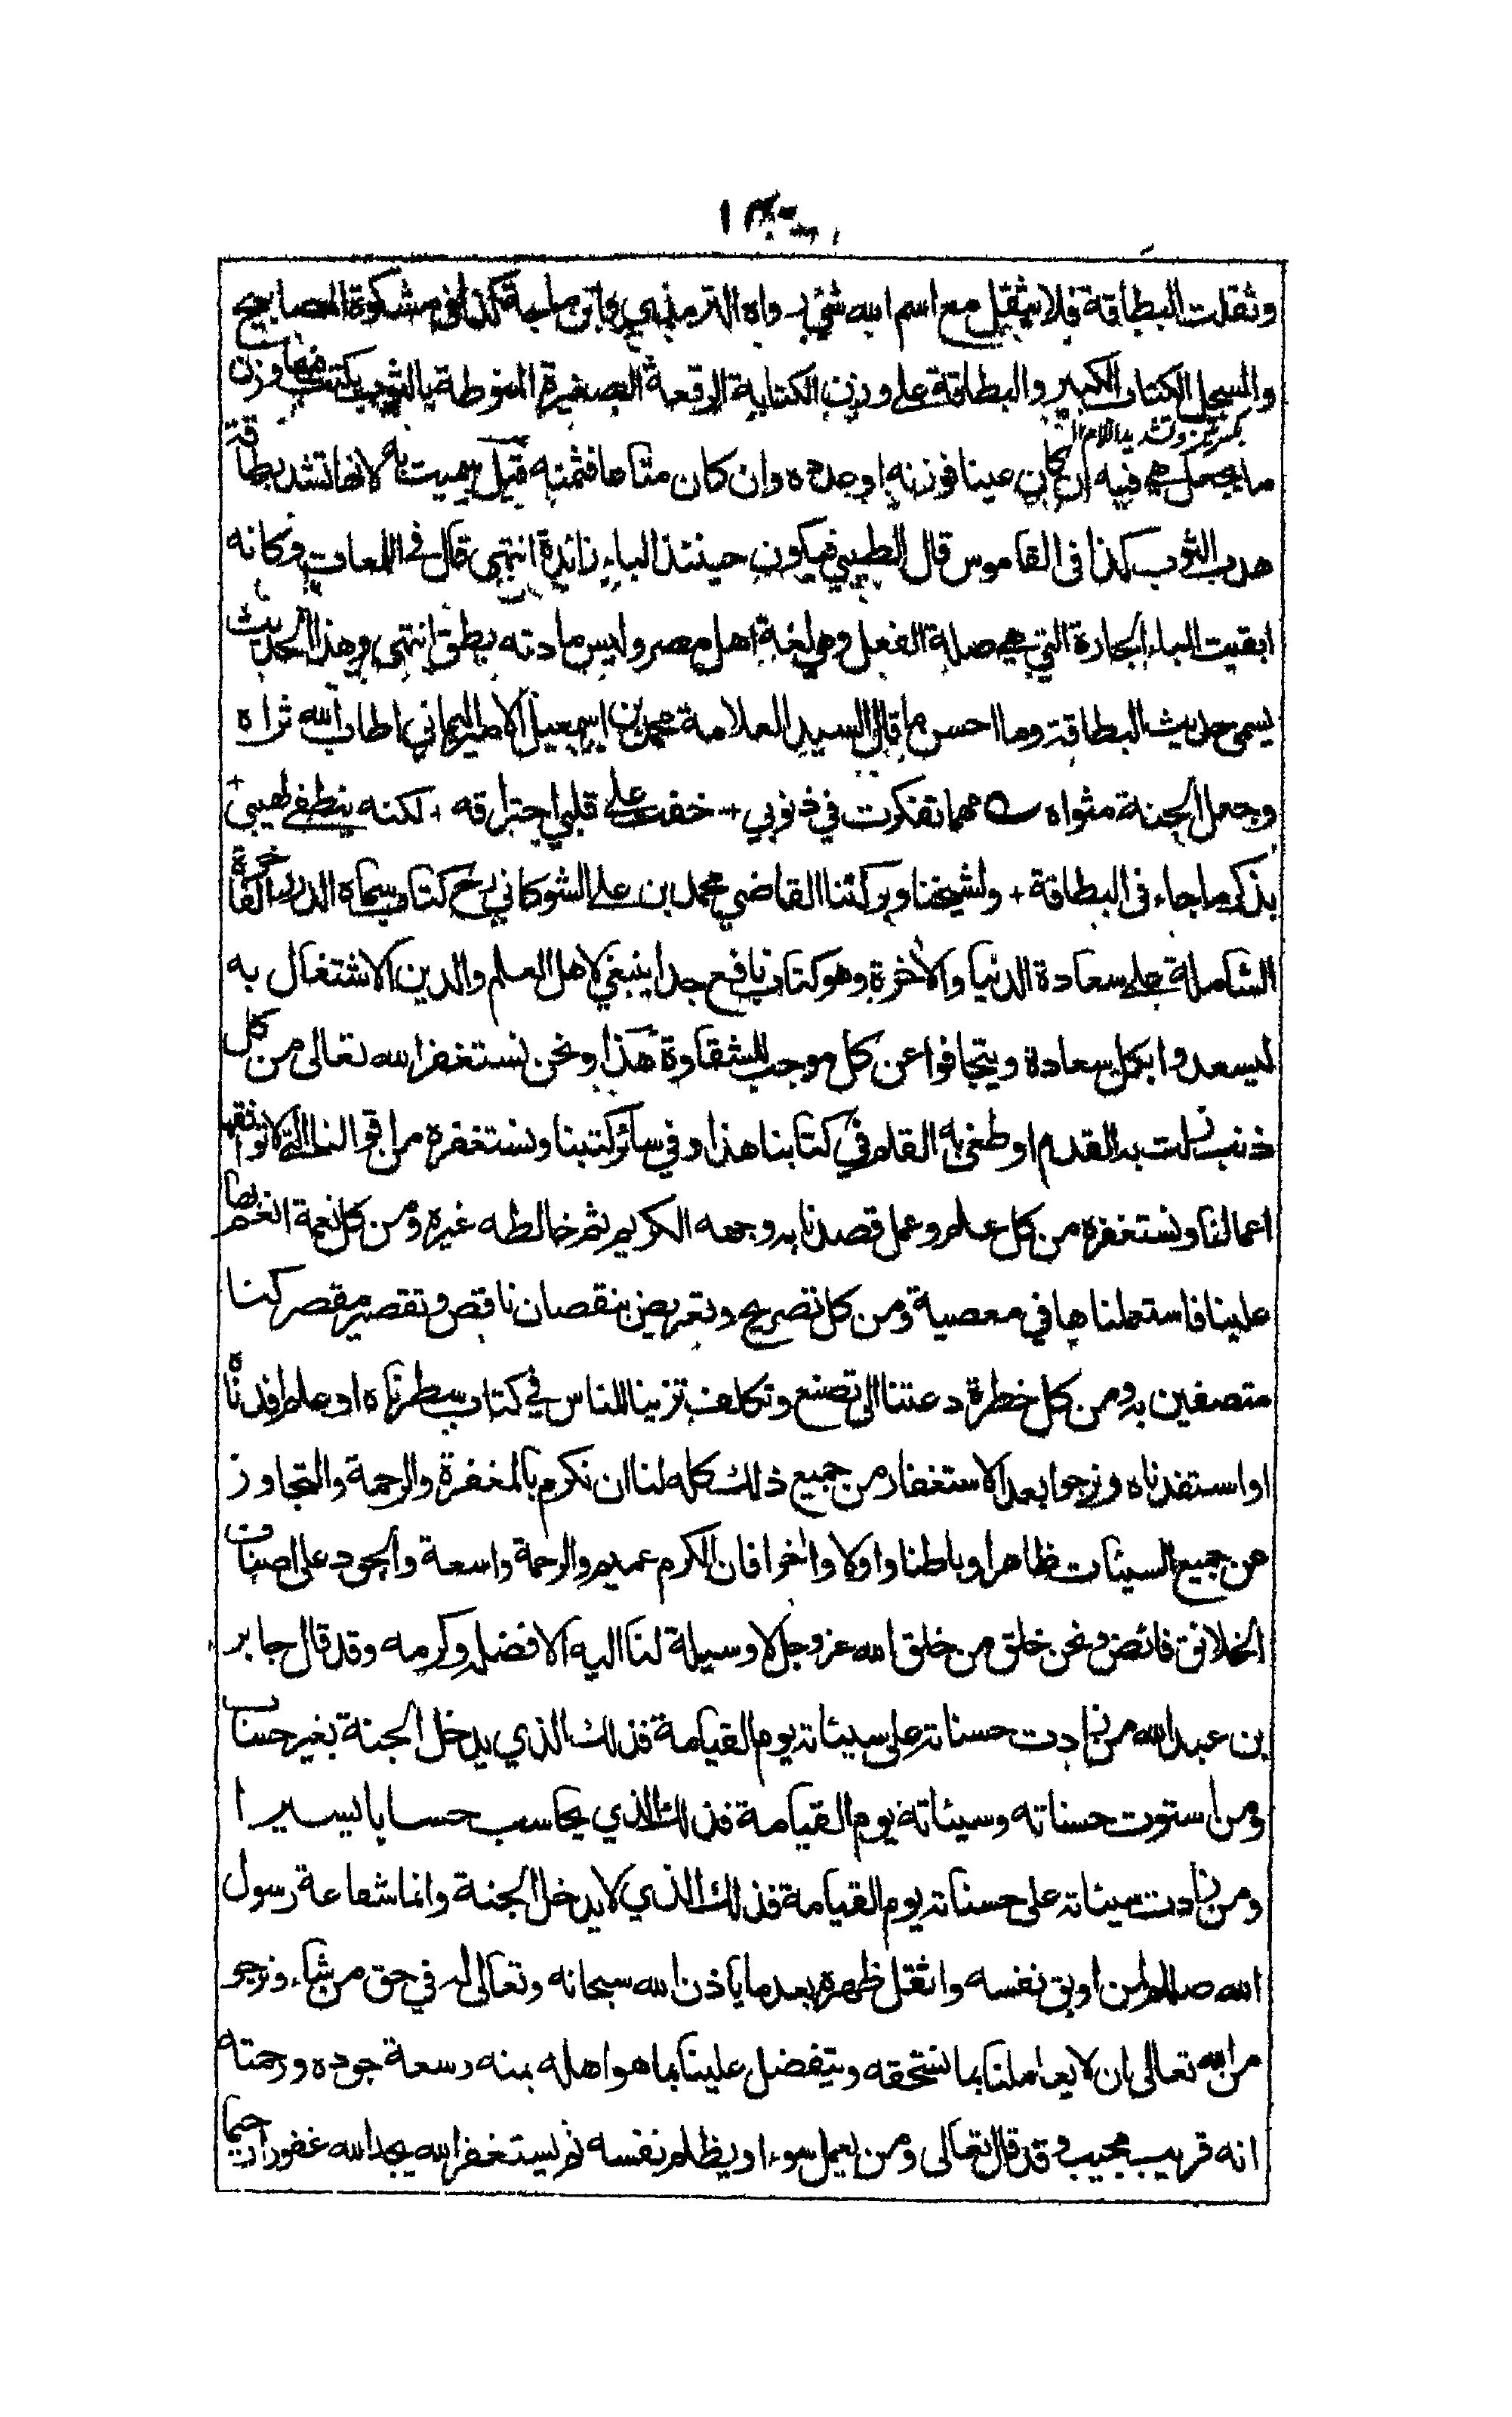 وثقلت البطاقة فلا يثقل مع اسم الله شئ رواه الترمذي وابن ماجة كذا في مشكوة المصابيح
والسجل الكتاب الكبير والبطاقة على وزن الكتابة الرقعة الصغيرة المنوطة بالثوب يكتب فيها وزن
بكسرتين وتشديد اللام
ما يجعل هي فيه ان كان عينا فوزنه او عدده وان كان متاعا فثمنه قيل سميت به لانها تشد بطاقة
هدب الثوب كذا في القاموس قال الطيبي فيكون حينئذ الباء زائدة انتهى قال في اللمعات وكانه
ابقيت الباء الجارة التي هي صلة الفعل وهي لغة اهل مصر وليس مادته بطق انتهى وهذا الحديث
يسمى حديث البطاقة وما احسن ما قال السيد العلامة محمد بن اسمعيل الامير اليماني اطاب الله ثراه
وجعل الجنة مثواه مهما تفكرت في ذنوبي + خفت على قلبي احتراقه + لكنه ينطفي لهيبي +
بذكر ما جاء في البطاقة + ولشيخنا وبركتنا القاضي محمد بن علي الشوكاني رح كتاب سماه الدرر الفاخرة
الشاملة على سعادة الدنيا والاخرة وهو كتاب نافع جدا ينبغي لاهل العلم والدين الاشتغال به
ليسعدوا بكل سعادة ويتجافوا عن كل موجب للشقاوة هذا ونحن نستغفر الله تعالى من كل
ذنب زلت به القدم او طغى به القلم في كتابنا هذا وفي سائر كتبنا ونستغفره من اقوالنا التي لا توافقها
اعمالنا ونستغفره من كل علم وعمل قصدنا به وجهه الكريم ثم خالطه غيره ومن كل نعمة انعم بها
علينا فاستعملناها في معصية ومن كل تصريح وتعريض بنقصان ناقص وتقصير مقصر كنا
متصفين به ومن كل خطرة دعتنا الى تصنع وتكلف تزينا للناس في كتاب سطرناه او علم افدناه
او استفدناه ونرجوا بعد الاستغفار من جميع ذلك كله لنا ان نكرم بالمغفرة والرحمة والتجاوز
عن جميع السيئات ظاهرا وباطنا واولا واخرا فان الكرم عميم والرحمة واسعة والجود على اصناف
الخلائق فائض ونحن خلق من خلق الله عز وجل لا وسيلة لنا اليه الا فضله وكرمه وقد قال جابر
بن عبد الله من زادت حسناته على سيئاته يوم القيامة فذلك الذي يدخل الجنة بغير حساب
ومن استوت حسناته وسيئاته يوم القيامة فذلك الذي يحاسب حسابا يسيرا
ومن زادت سيئاته على حسناته يوم القيامة فذلك الذي لا يدخل الجنة وانما شفاعة رسول
الله صللم لمن اوبق نفسه واثقل ظهره بعد ما ياذن الله سبحانه وتعالى له في حق من شاء ونرجو
من الله تعالى ان لا يعاملنا بما نستحقه ويتفضل علينا بما هو اهله بمنه وسعة جوده ورحمته
انه قريب مجيب وقد قال تعالى ومن يعمل سوءا او يظلم نفسه ثم يستغفر الله يجد الله غفورا رحيما